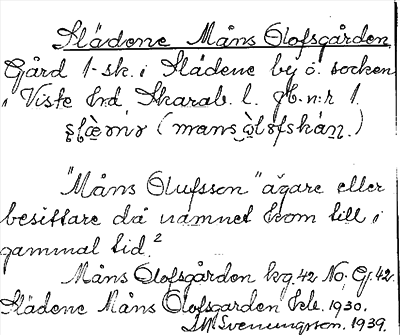 Slädene Måns Olofsgården
Gård 1. sk. i Slädene by o. socken
i Viste hd Skarab. l. jb. n:r 1.
(mans
"Måns Olufsson" ägare eller
besittare då namnet kom till i
gammal tid.²
Måns Olofsgården kzg. 42 No, Gj. 42.
Slädene Måns Olofsgården tele. 1930.
Svenungson. 1939.